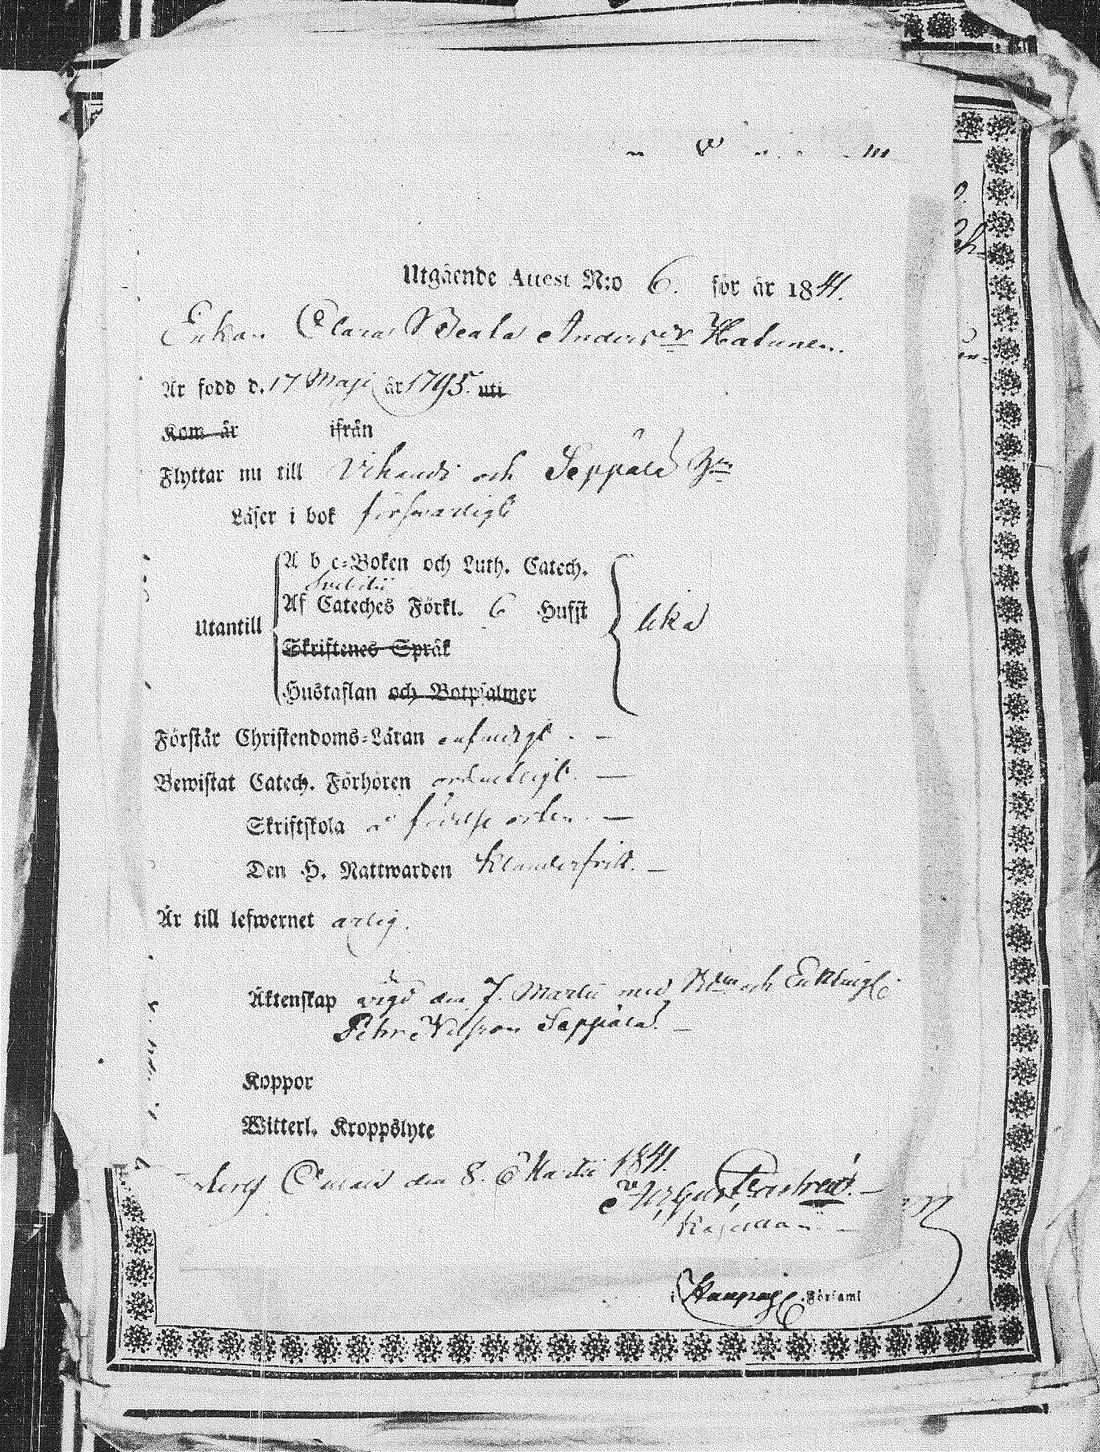 Utgående Attest N:o 6. för år 1841.
Enkan Clara Beata Anders Hatunen.
Är född d. 17 Maji år 1795. uti
Kom år ifrån
Flyttar nu till och Seppälä
Läser i bok försvarligt
A b c-Boken och Luth. Catech.
Af Cateches Förkl. 6 Hufst
Utantill lika
Skriftenes Språk
Hustaflan och Botpsalmer
Förstår Christendoms-Läran enfaldigt
Bewistat Catech. Förhören ordentligt. —
Skriftskola å födelse orten. —
Den H. Nattwarden klanderfritt. —
Är till lefwernet ärlig.
Äktenskap vigd den 7. Martii med och Enkling
Pehr Nilsson Seppälä. —
Koppor
Witterl. Kroppslyte
den 8. Martii 1841.
i Församl